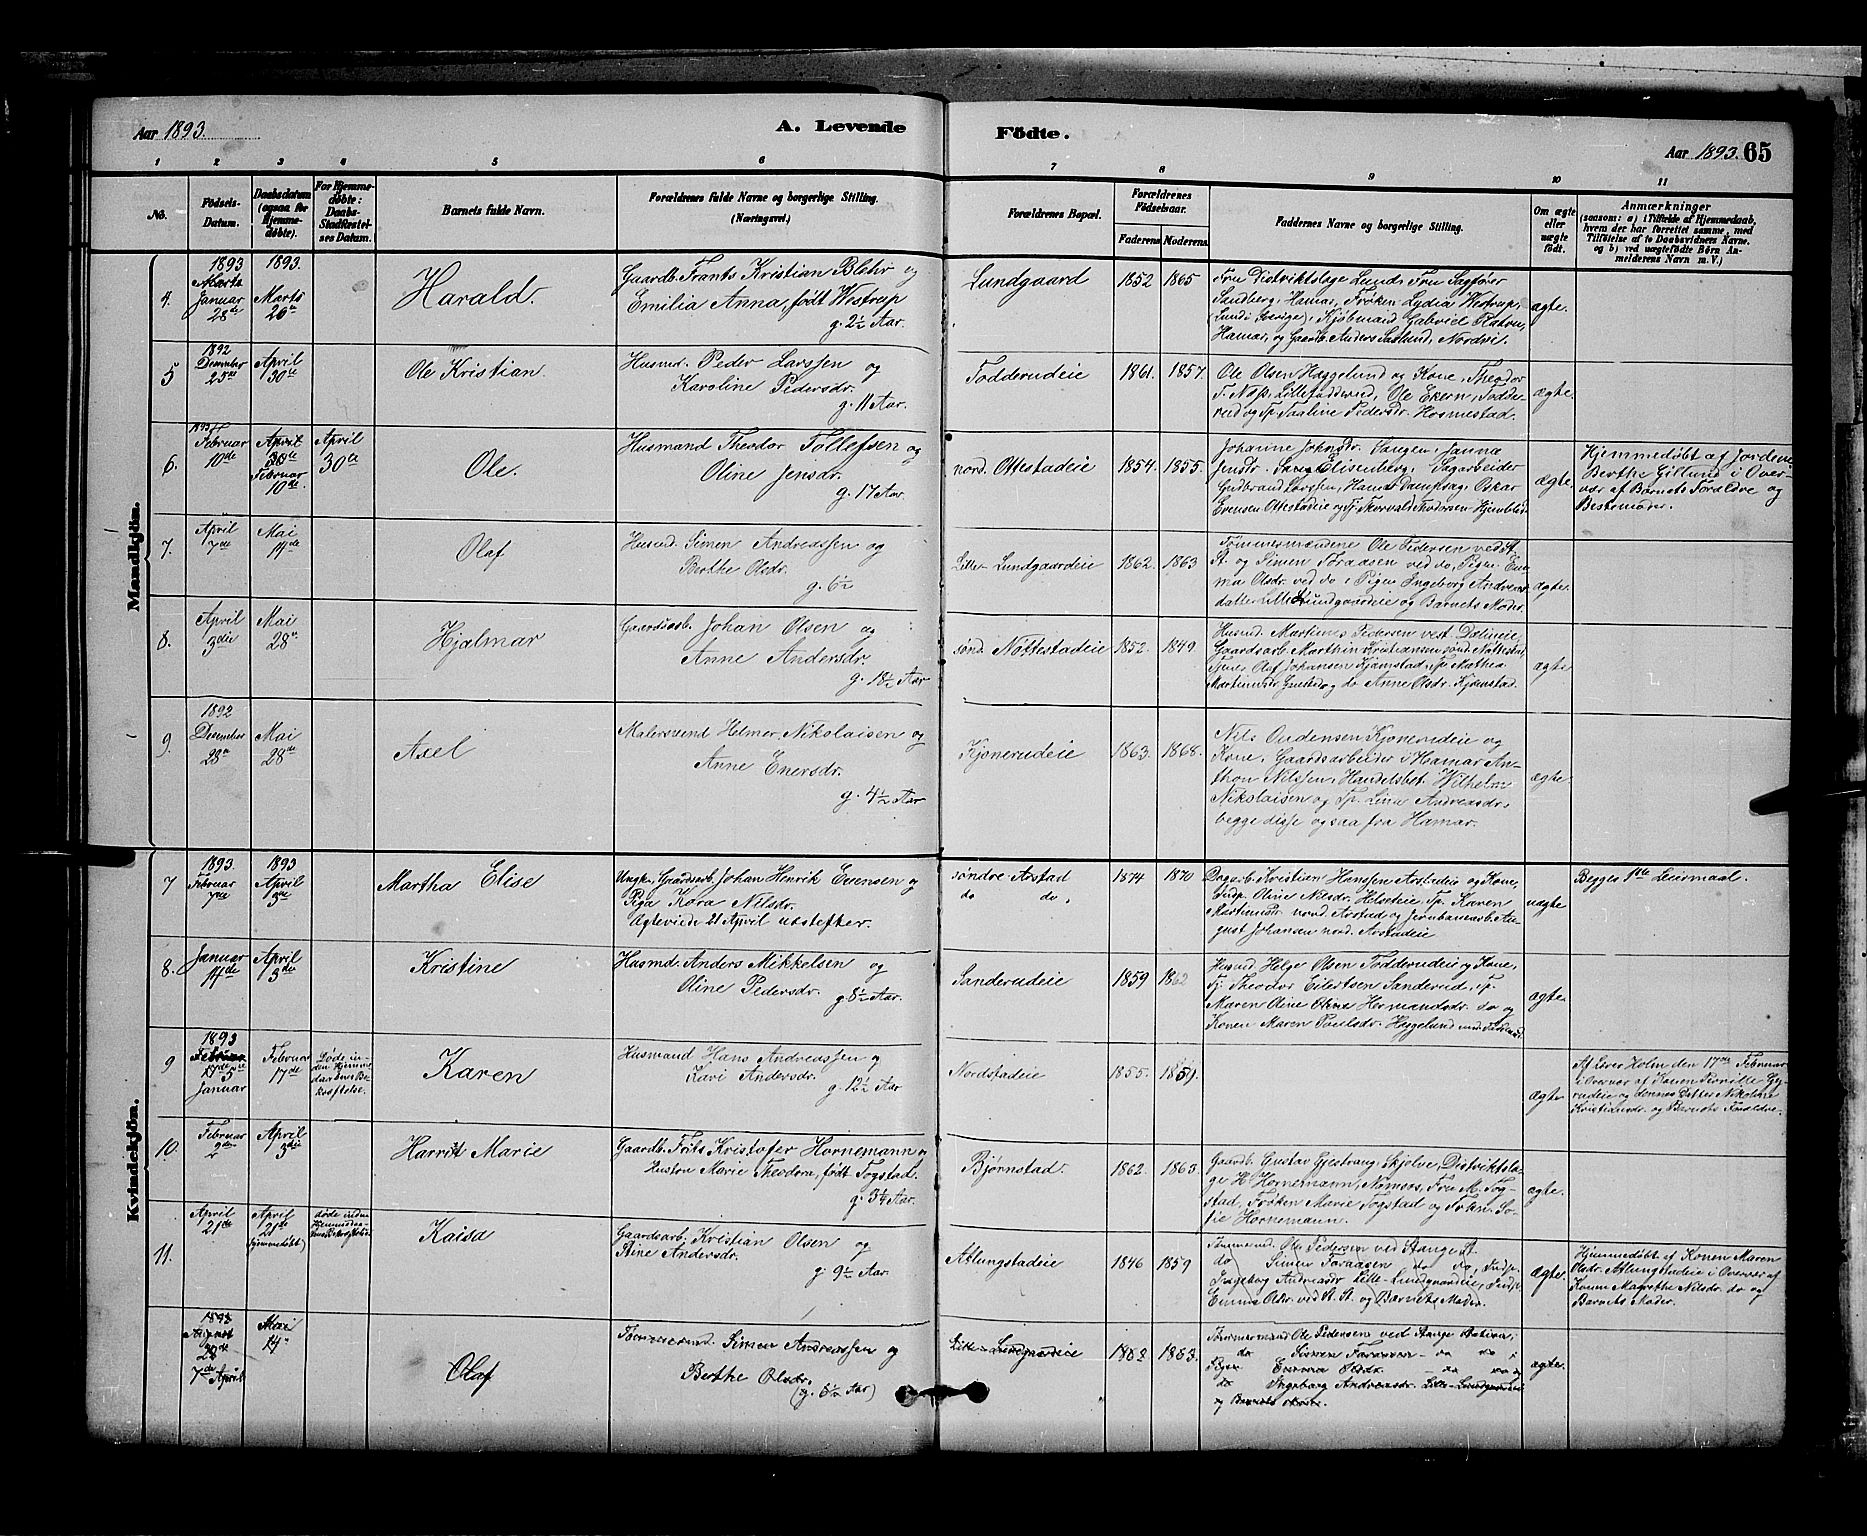 Aar 1893.
A. Levende
Födte.
Aar 1893. 65
1 2 3 4 5 6 7 8 9 10 11
No.
Födsels-
Datum.
Daabsdatum
(ogsaa for
Hjemme-
døbte).
For Hjemme-
døbte:
Daabs-
Stadfæstel-
ses Datum.
Barnets fulde Navn.
Forældrenes fulde Navne og borgerlige Stilling.
(Næringsvei.)
Forældrenes Bopæl.
Forældrenes
Födselsaar.
Faderens
Moderens.
Faddernes Navne og borgerlige Stilling.
Om ægte
eller
uægte
født.
Anmærkninger
(saasom: a) i Tilfælde af Hjemmedaab,
hvem der har forrettet samme, med
Tilföielse af to Daabsvidners Navne.
og b) ved uægtefödte Börn An-
melderens Navn m. V.)
Mandkjön.
4.
1893
Marts
Januar
28de
1893.
Marts
26de
Harald.
Gaardb. Frants Kristian Blehr og
Emilia Anna, født Westrup
g. 2½ Aar.
Lundgaard
1852 1865
Fru Distriktslæge Lund, Fru Sagfører
Sandberg, Hamar, Frøken Lydia Westrup,
(Lund i Sverige), Kjøbmand Gabriel
Hamar, og Gaardb. Anders Nordvi.
ægte.
5
1892
Desember
25de
April
30te
Ole Kristian.
Husmd. Peder Larssen og
Karoline Pedersdr.
g. 11 Aar.
Fodderudeie
1861. 1857.
Ole Olsen Haggelund og Kone, Theodor
Lillefodderud, Ole Ekern, Fodde-
rud og Tp. Pedersdr. Hosmestad.
ægte.
6.
1893
Februar
10de
April
30te
Februar
10de
April
30te
Ole.
Husmand Theodor Tollefsen og
Oline Jensdr.
g. 17 Aar.
nord. Ottestadeie
1854. 1855.
Johanne Johnsdr. Sangen, Janna
Jensdr. Elisenberg, Sagarbeider
Gudbrand Larssen, Hamar Dampsag, Oskar
Evensen Ottestadeie og Tj. Thorvald
ægte.
Hjemmedøbt af Jordem.
Berthe Gillund i Over-
vær af Barnets Forældre og
Bestemoder.
7.
April
7de
Mai
14de
Olaf
Husmd. Simen Andreassen og
Berthe Olsdr.
g. 6½
Lille-Lundgaardeie
1862. 1863
Tømmermændene Ole Pedersen ved St.
St. og Simen Foraasen ved do, Pigen Em-
ma Olsdr. ved do, Pigen Ingeborg Andreas-
datter Lille Lundgaardeie og Barnets Moder.
ægte.
8.
April
3die
Mai
28de
Hjalmar
Gaardsarb. Johan Olsen og
Anne Andersdr.
g. 18½ Aar
sønd. Nøttestadeie
1852. 1849
Husmd. Martinus Pedersen vest.
Gaardsarb. Marthin Kristiansen sønd. Nøttestad,
Olaf Johansen Kjønstad, Tp. Mathea
og do Anne Olsdr. Kjønstad.
ægte
9.
1892
Desember
28de
Mai
28de
Axel
Malersvend Helmer Nikolaisen og
Anne Enersdr.
g. 4½ Aar
Kjonerudeie
1863. 1868.
Nils Audensen Kjonerudeie og
Kone, Gaardsarbeider i Hamar An-
thon Nilssen, Handelsbet. Wilhelm
Nikolaisen og Tp. Lina Andreasdr.
begge disse ogsaa fra Hamar.
ægte.
Kvindekjön.
7
1893
Februar
7de
1893
April
3die
Martha Elise
Ungk. Gaardsarb. Johan Henrik Evensen og
Pige Kora Nilsdr.
Ægteviede 21 April næstefter.
søndre Arstad
do do.
1874 1870
Dagarb. Kristian Hanssen Arstadeie og Kone,
Oline Nilsdr. Tp. Karen
nord. Arstad og Jernbanearb. Au-
gust Johansen nord. Arstadeie
uægte
Begges 1ste Leiermaal.
8.
Januar
14de
April
3die
Kristine
Husmd. Anders Mikkelsen og
Oline Pedersdr. g. 8½ Aar.
Sanderudeie
1859 1862
Husmd. Helge Olsen Fodderudeie og Kone,
Tj. Theodor Eilertsen Sanderud, Tp.
Maren Oline Hermandsdr. do og
Konen Maren Poulsdr. Haggelund
ægte.
9
1893
Februar
17de
5te
Januar
Februar
17de
Døde in-
den Hjemme-
daabens Be-
kræftelse.
Karen
Husmand Hans Andreassen og
Kari Andersdr.
g. 12½ Aar
Nordstadeie
1855. 1859.
ægte.
Af Lærer Holm den 17de Februar
i Overvær af Konen Pernille
og dennes Datter Nikoline
Kristiansdr. og Barnets Forældre.
10.
Februar
2den
April
3die
Harrit Marie
Gaardb. Frits Kristofer Hornemann og
Hustru Marie Theodora, født Fogstad.
g. 3¼ Aar.
Bjørnstad.
1862. 1863.
Gaardb. Gustav Gjestvang, Skjelve, Distriktslæ-
ge H. Hornemann, Namsos, Fru M. Fog-
stad, Frøken Marie Fogstad og Frøken So-
fie Hornemann.
ægte.
11.
April
21de
April
21de
(hjemmedøbt)
døde inden
Hjemmedaa-
bens Bekræftelse.
Kaisa
Gaardsarb. Kristian Olsen og
Stine Andersdr.
g. 9½ Aar.
Atlungstadeie
1846 1859
Tømmermd. Ole Pedersen ved Stange St.
do Simen Foraasen do do,
Ingeborg Andreasdr Lille-Lundgaardeie,
Emma Olsdr. ved St. St. og Barnets Moder.
ægte.
Hjemmedøbt af Konen Maren
Olsdr. Atlungstadeie i Overvær af
Konen Magrethe Nilsdr. do og
Barnets Moder.
1893
August
22de
7de April
Mai
14de
Olaf
Tømmermd. Simen Andreassen og
Berthe Olsdr.
(g. 6½ Aar)
Lille-Lundgaardeie
1862 1863.
Tømmermand Ole Pedersen ved Stange Station,
do Simen Foraasen – do do,
Pigen Emma Olsdr. – do do
do Ingeborg Andreasdr. Lille-Lundgaardeie
og Barnets Moder.
ægte.